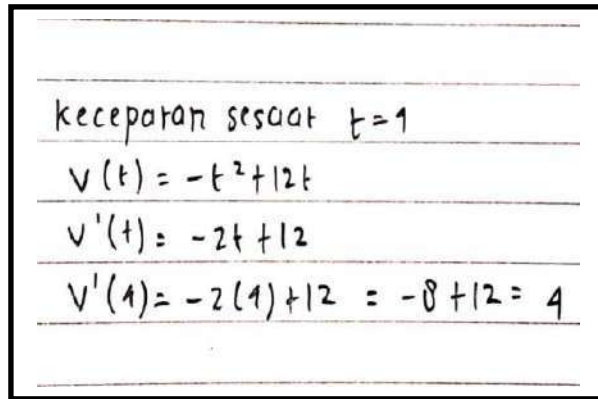 kecepatan sesaat t=4
V(t) = -t²+12t
V'(t) = -2t+12
V'(4) = -2(4)+12 = -8+12 = 4